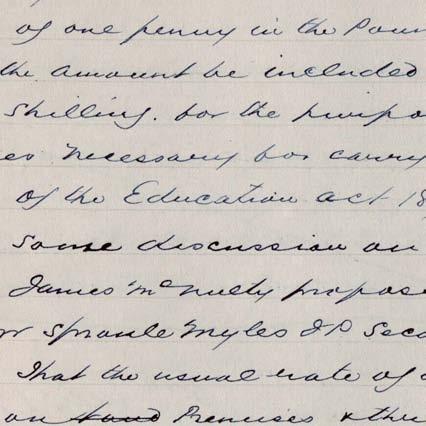 of one penny in the Poun
the amount be included
Shilling. for the purpo
es necessary for carry
of the Education act 18
Some discussion on
James McNulty propose
r Sproule Myles JP Seco
That the usual rate of
on Premises & the